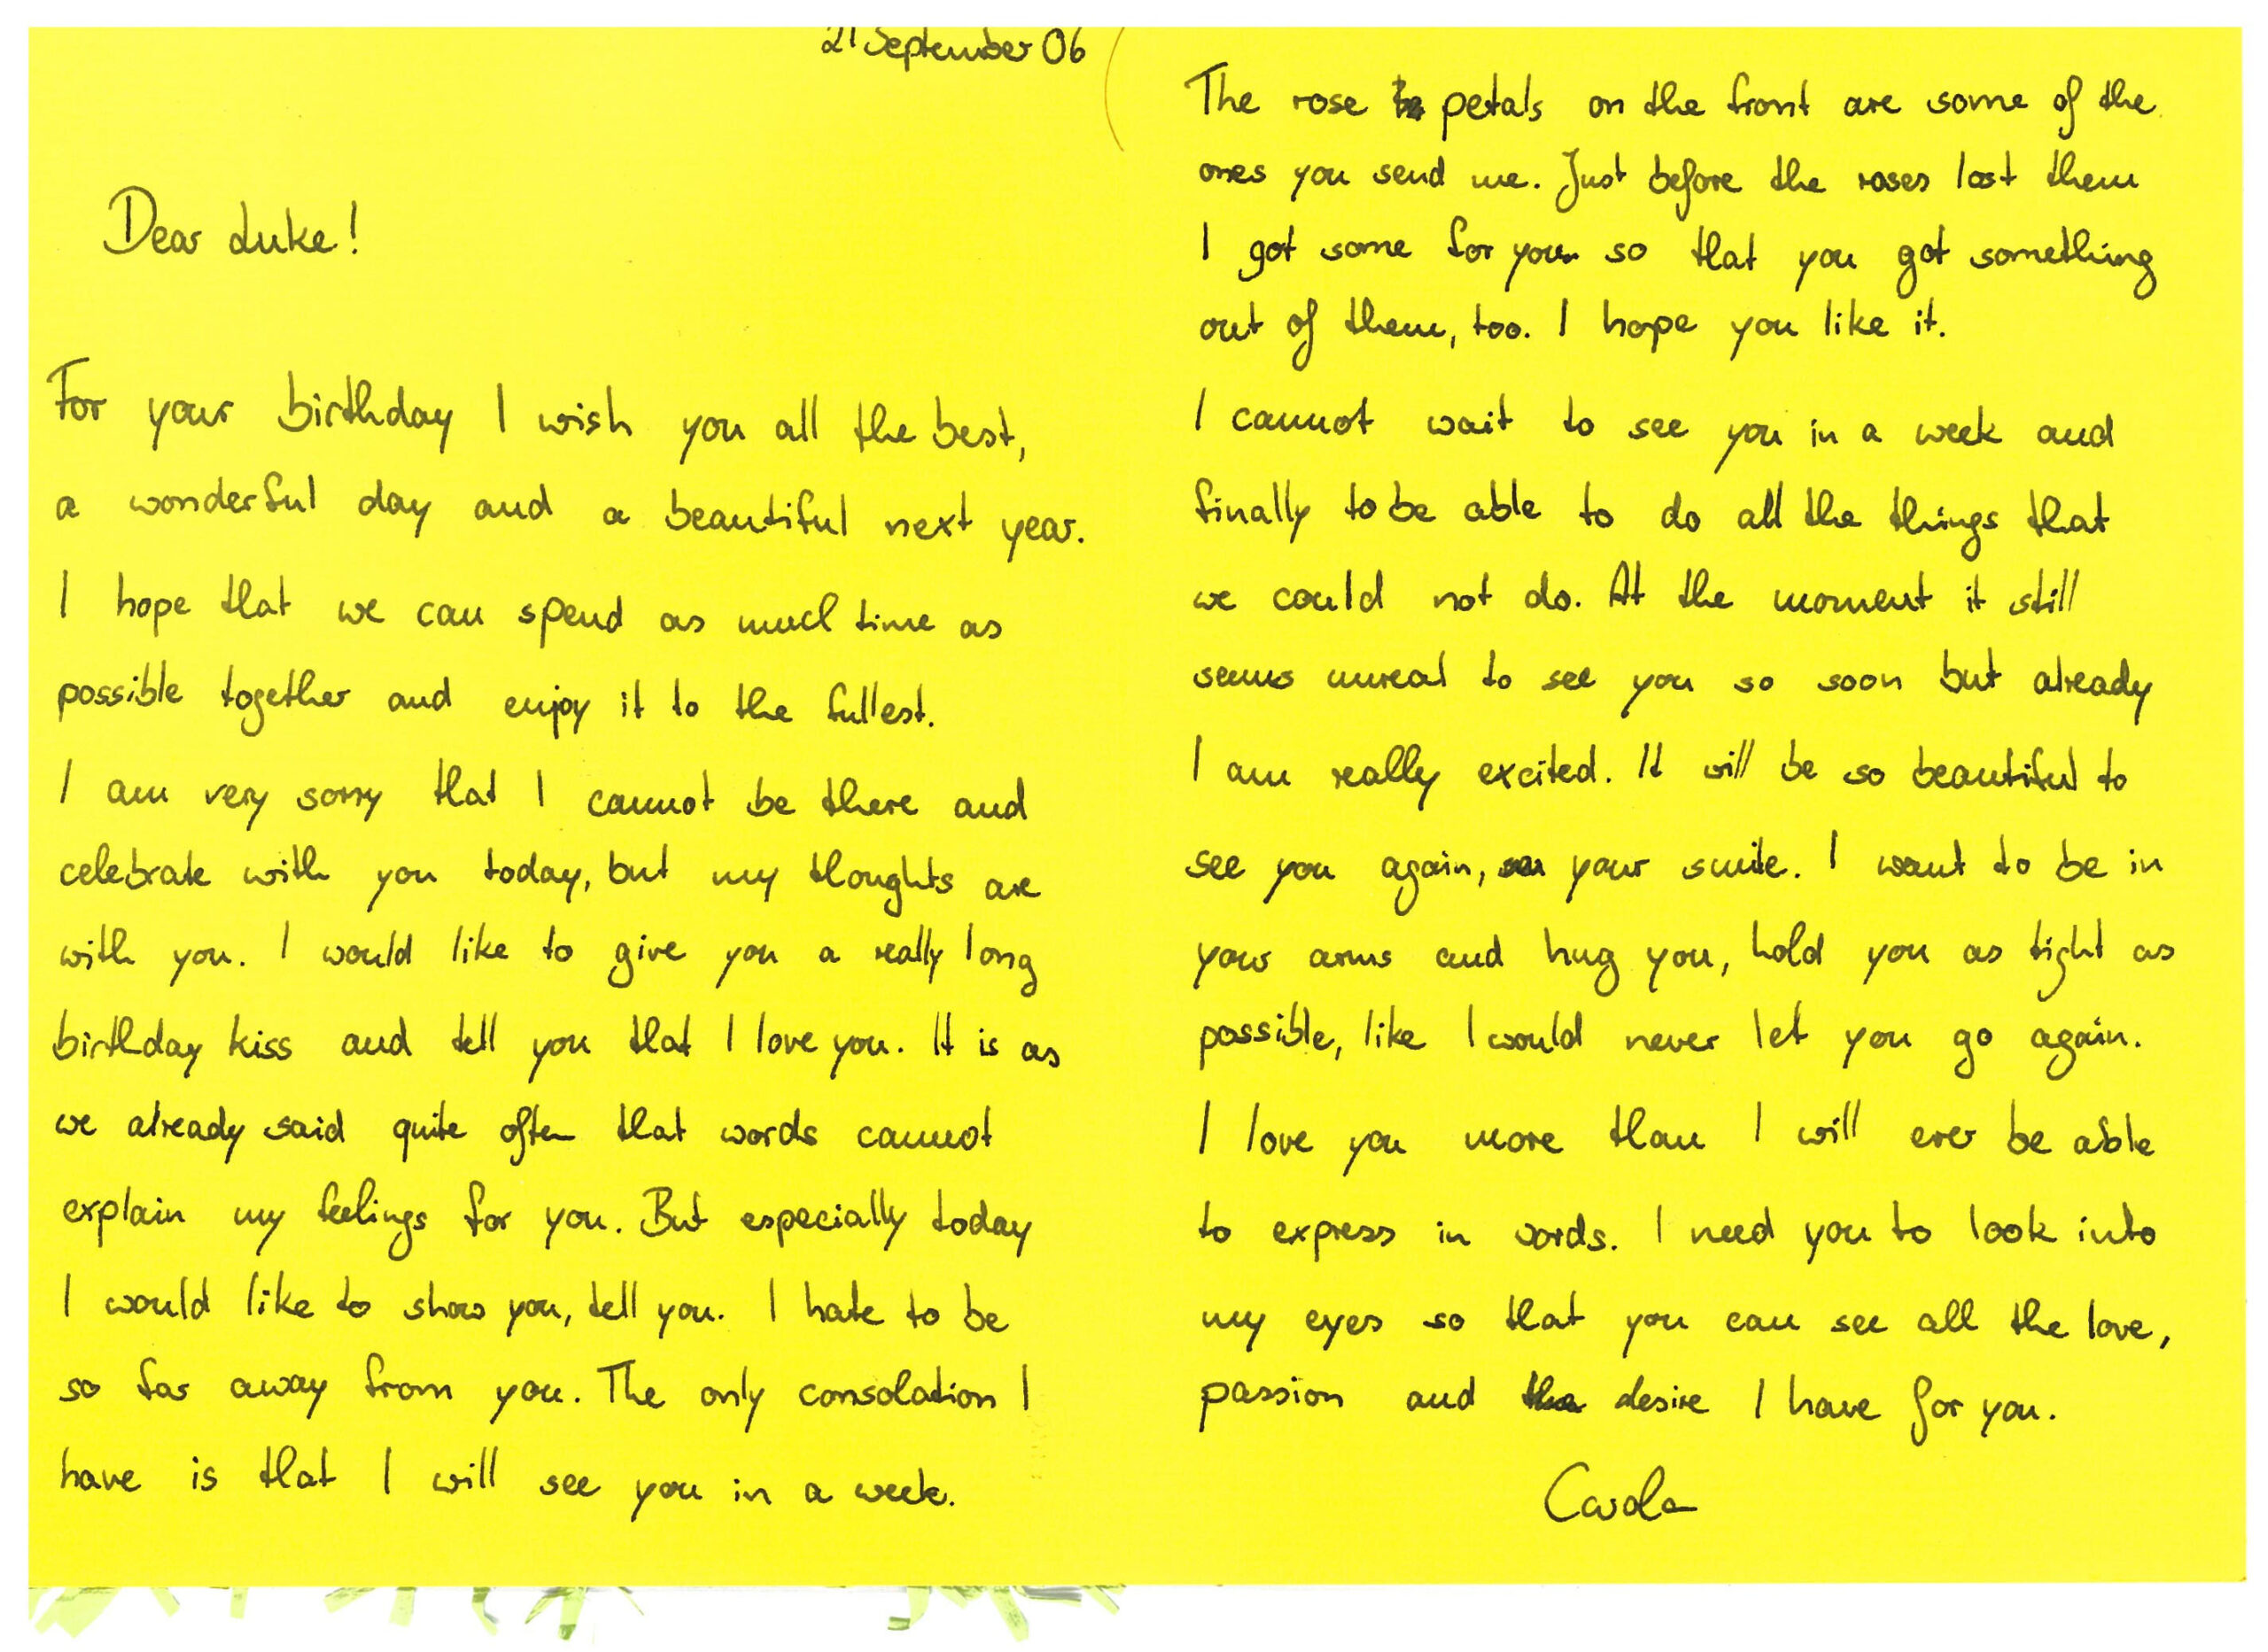 21 September 06
Dear Luke!
For your birthday I wish you all the best,
a wonderful day and a beautiful next year.
I hope that we can spend as much time as
possible together and enjoy it to the fullest.
I am very sorry that I cannot be there and
celebrate with you today, but my thoughts are
with you. I would like to give you a really long
birthday kiss and tell you that I love you. It is as
we already said quite often that words cannot
explain my feelings for you. But especially today
I would like to show you, tell you. I hate to be
so far away from you. The only consolation I
have is that I will see you in a week.
The rose petals on the front are some of the
ones you send me. Just before the roses lost them
I got some for you so that you got something
out of them, too. I hope you like it.
I cannot wait to see you in a week and
finally to be able to do all the things that
we could not do. At the moment it still
seems unreal to see you so soon but already
I am really excited. It will be so beautiful to
see you again, your smile. I want to be in
your arms and hug you, hold you as tight as
possible, like I would never let you go again.
I love you more than I will ever be able
to express in words. I need you to look into
my eyes so that you can see all the love,
passion and desire I have for you.
Carola